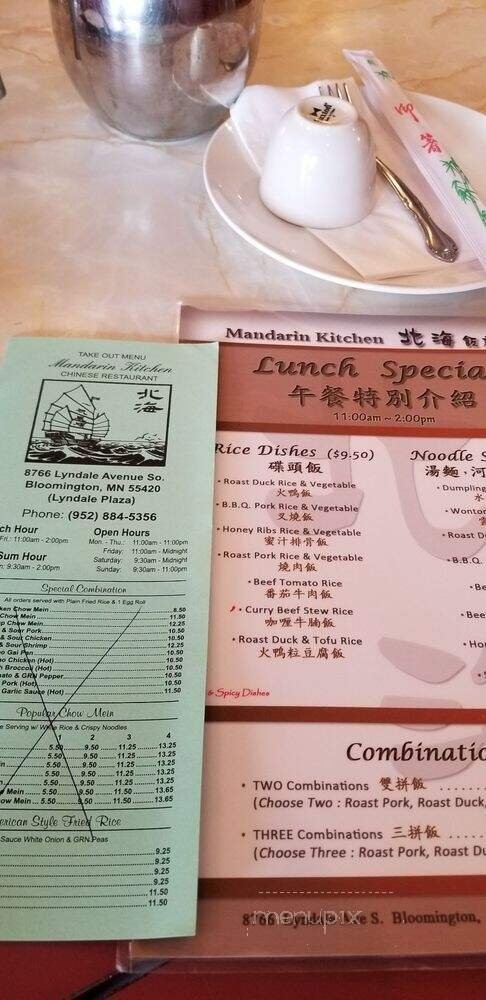 御
箸
TAKE OUT MENU
Mandarin Kitchen
CHINESE RESTAURANT
北
海
8766 Lyndale Avenue So.
Bloomington, MN 55420
(Lyndale Plaza)
Phone: (952) 884-5356
Hour
Fri.: 11:00am - 2:00pm
Sum Hour
9:30am - 2:00pm
Open Hours
Mon. - Thu.: 11:00am - 11:00pm
Friday: 11:00am - Midnight
Saturday: 9:30am - Midnight
Sunday: 9:30am - 11:00pm
Special Combination
All orders served with Plain Fried Rice & 1 Egg Roll
Chow Mein 8.50
Chow Mein 11.50
Chow Mein 12.25
& Sour Pork 10.50
& Sour Chicken 10.50
& Sour Shrimp 12.25
Gai Pan 10.50
Chicken (Hot) 10.50
Broccoli (Hot) 10.50
& GRN Pepper 10.50
Pork (Hot) 10.50
Garlic Sauce (Hot) 11.50
Popular Chow Mein
Serving w/ White Rice & Crispy Noodles
1 2 3 4
5.50 9.50 11.25 13.25
5.50 9.50 11.25 13.25
5.50 9.50 11.25 13.25
5.50 9.50 11.25 13.25
Mein 5.50 9.50 11.50 13.65
Mein 5.50 9.50 11.50 13.65
Style Fried Rice
Sauce White Onion & GRN Peas
9.25
9.25
9.25
9.25
11.50
11.50
Mandarin Kitchen 北海飯
Lunch Specia
午餐特別介紹
11:00am ~ 2:00pm
Rice Dishes ($9.50)
碟頭飯
• Roast Duck Rice & Vegetable
火鴨飯
• B.B.Q. Pork Rice & Vegetable
叉燒飯
• Honey Ribs Rice & Vegetable
蜜汁排骨飯
• Roast Pork Rice & Vegetable
燒肉飯
• Beef Tomato Rice
番茄牛肉飯
• Curry Beef Stew Rice
咖喱牛腩飯
• Roast Duck & Tofu Rice
火鴨粒豆腐飯
& Spicy Dishes
Noodle S
湯麵,河
• Dumpling
水
• Wonton
雲
• Roast
• B.B.Q.
• Bee
• Ho
Combinatio
• TWO Combinations 雙拼飯
(Choose Two : Roast Pork, Roast Duck,
• THREE Combinations 三拼飯
(Choose Three : Roast Pork, Roast Du
8766 Lyndale Ave S. Bloomington,
menupix